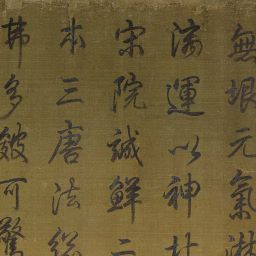 無垠元氣淋
漓運以神計
宋院誠鮮二
本三唐法總
弗多皴可驚